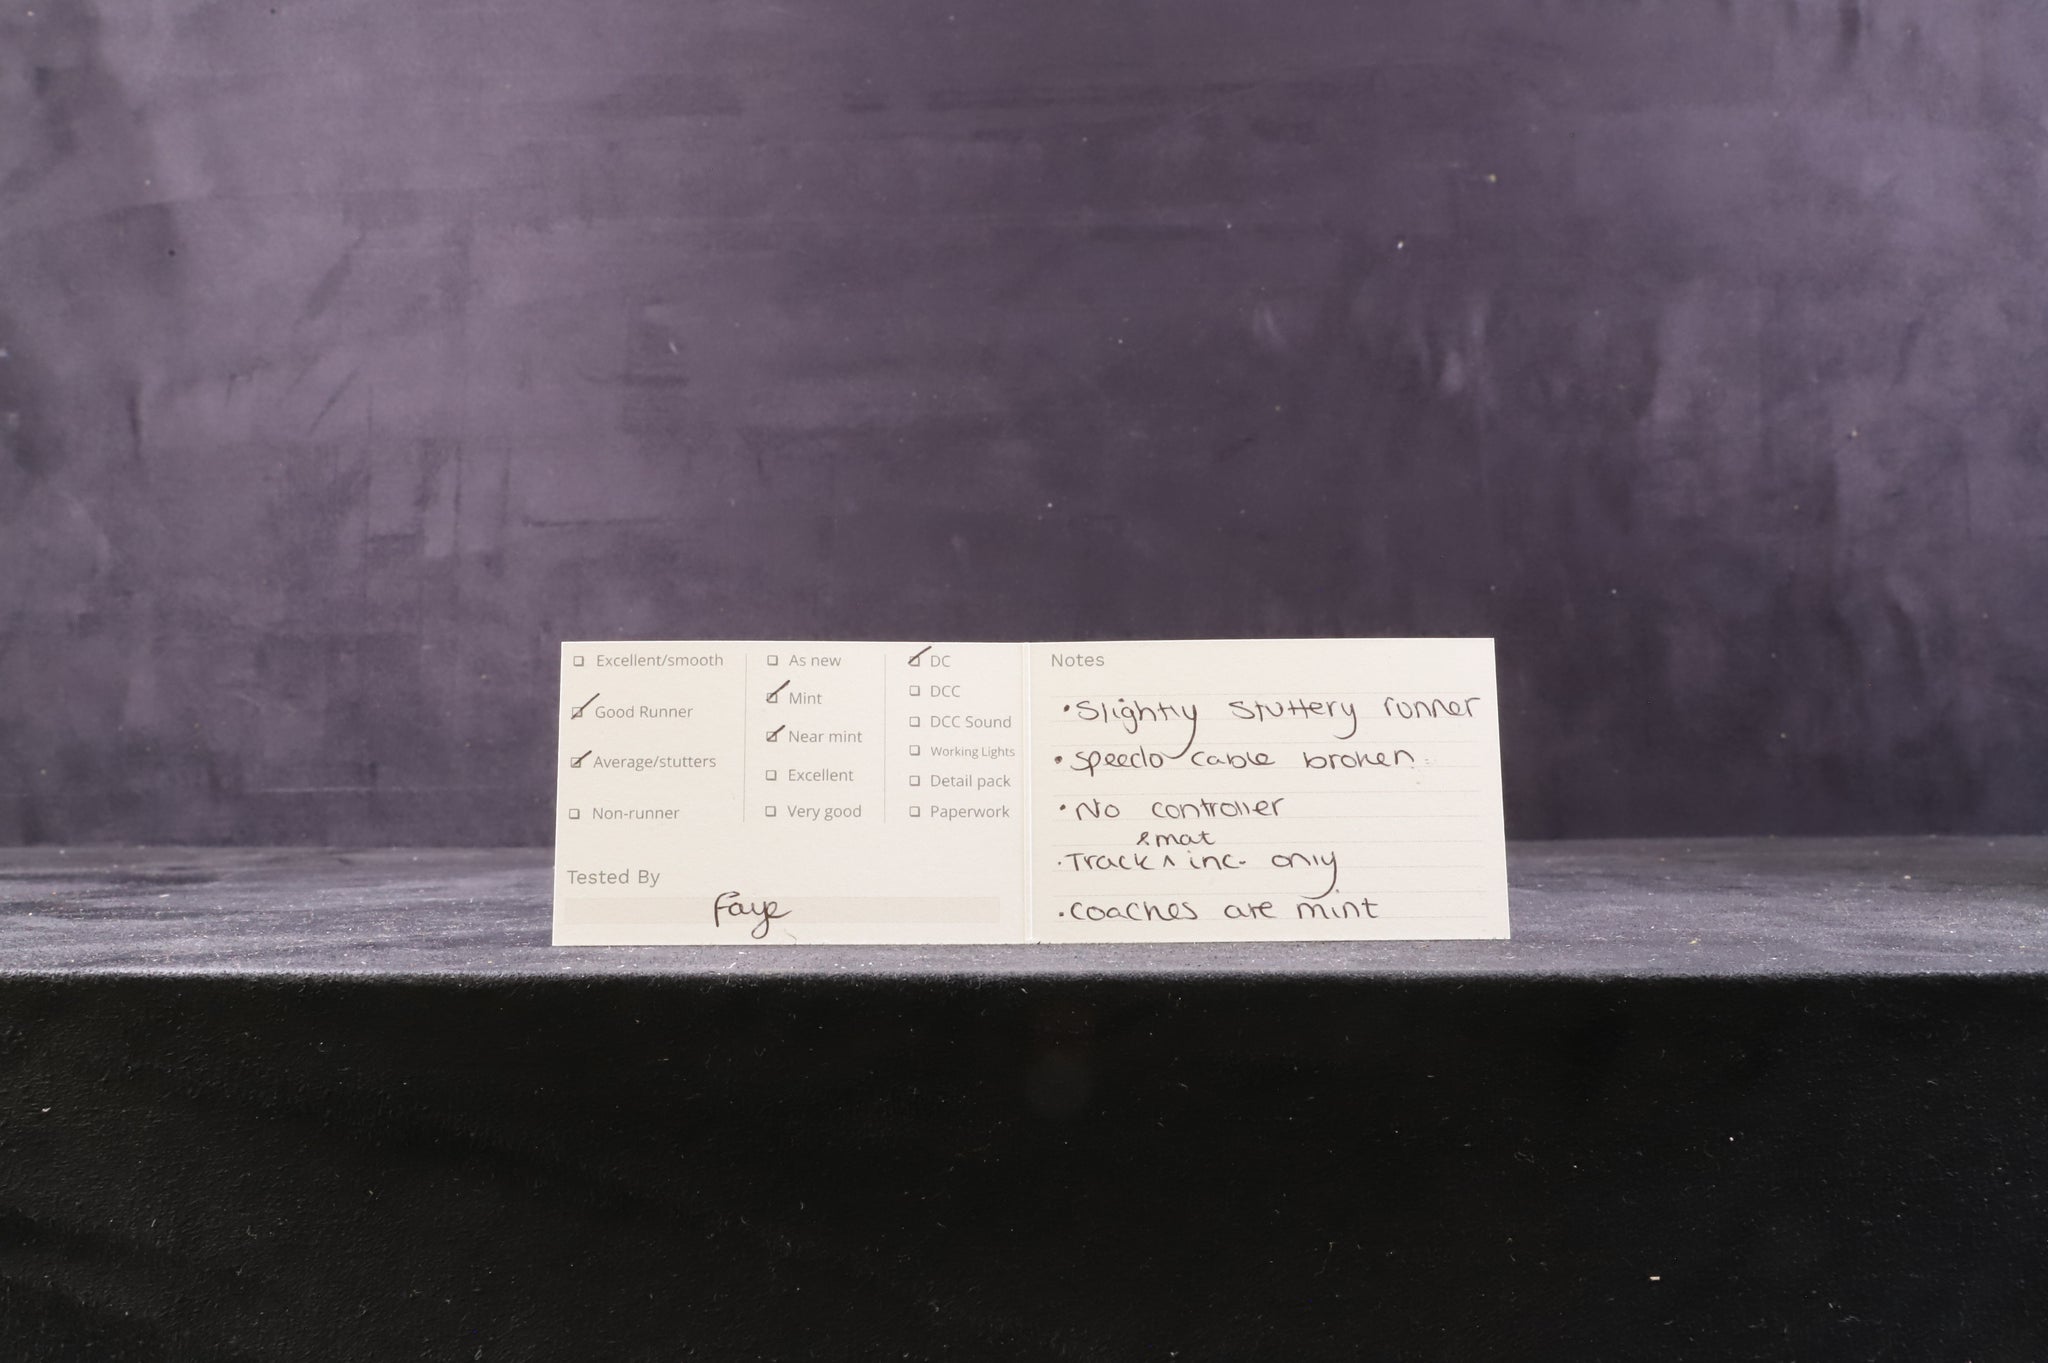 ☐ Excellent/smooth
☑ Good Runner
☑ Average/stutters
☐ Non-runner
☐ As new
☑ Mint
☑ Near mint
☐ Excellent
☐ Very good
☑ DC
☐ DCC
☐ DCC Sound
☐ Working Lights
☐ Detail pack
☐ Paperwork
Tested By
Faye
Notes
• Slightly stuttery runner
• speedo cable broken
• No controller
& mat
• Track ^ inc. only
• coaches are mint